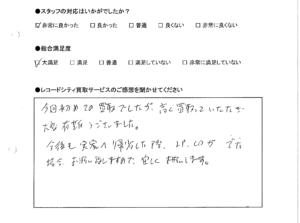 ●スタッフの対応はいかがでしたか？
☑非常に良かった □良かった □普通 □良くない □非常に良くない
●総合満足度
☑大満足 □満足 □普通 □満足していない □非常に満足していない
●レコードシティ買取サービスのご感想を聞かせてください
今回初めての買取でしたが、高く買取っていただき
大変有難うございました。
今後も実家へ帰省した際、LP、CDが でた
場合、お願い致しますので、宜しくお願いします。